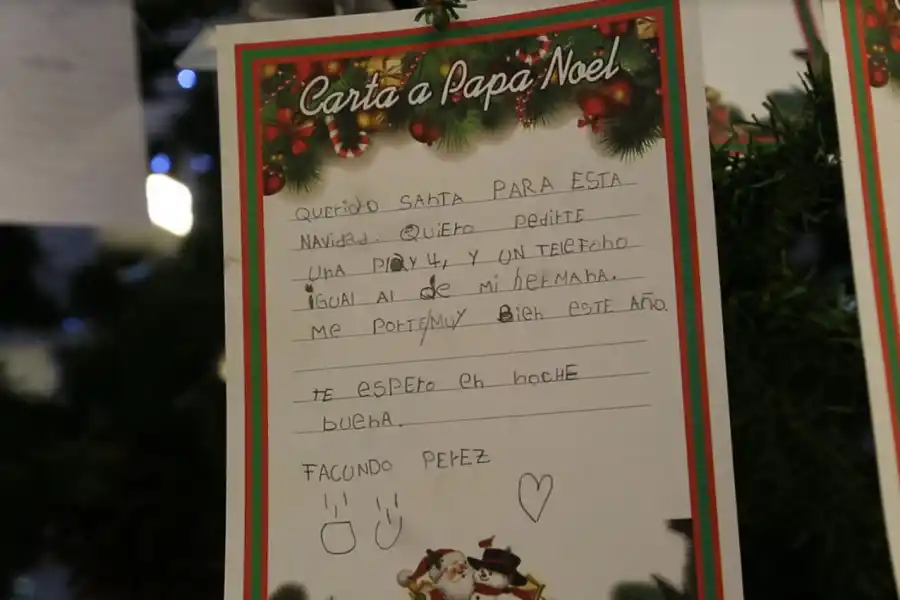 Carta a Papa Noel
QUErido SAnTA PARA ESTA
NAvidad. QuiEro PEdirTE
UnA PlAY 4, Y UN TELEFono
iGUAL Al de Mi herMAnA.
ME PorTE/MuY Bien esTE AÑo.
TE ESPEro en noCHE
buEnA.
FACUNDO PErEZ